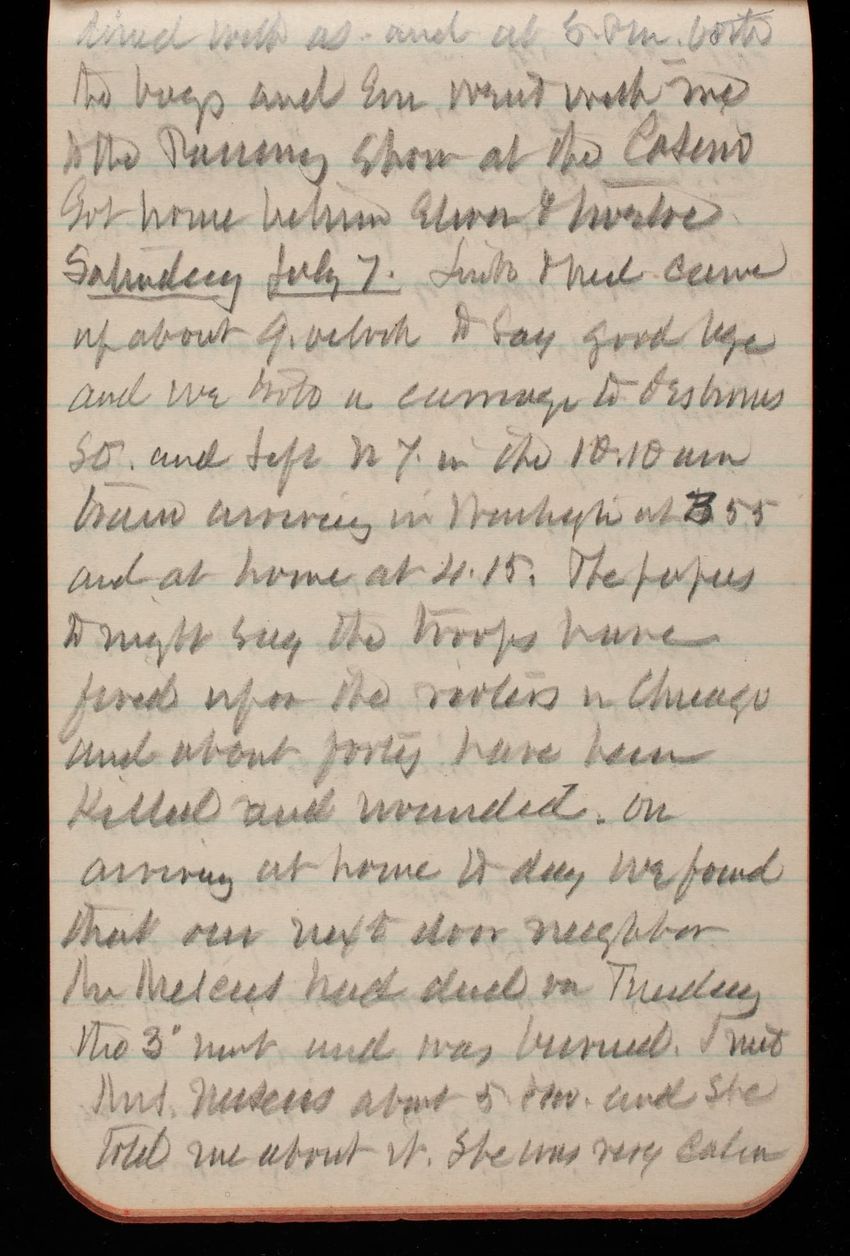 dined with us. and at 8. P.M. both
the boys and Em went with me
to the Passing Show at the Casino
Got home between Eleven & twelve
Saturday July 7. & Ned came
up about 9. oclock to say good bye
and we took a carriage to Desbrosses
St. and left N Y. in the 10.10 am
train arriving in Washington at 3 55
and at home at 4.15. The papers
to night say the troops have
fired upon the rioters in Chicago
and about forty have been
Killed and wounded. On
arriving at home to day we found
that our next door neighbor
Mr had died on Tuesday
the 3" inst and was buried. I met
Mrs. about 5 P.M. and She
told me about it. She was very calm